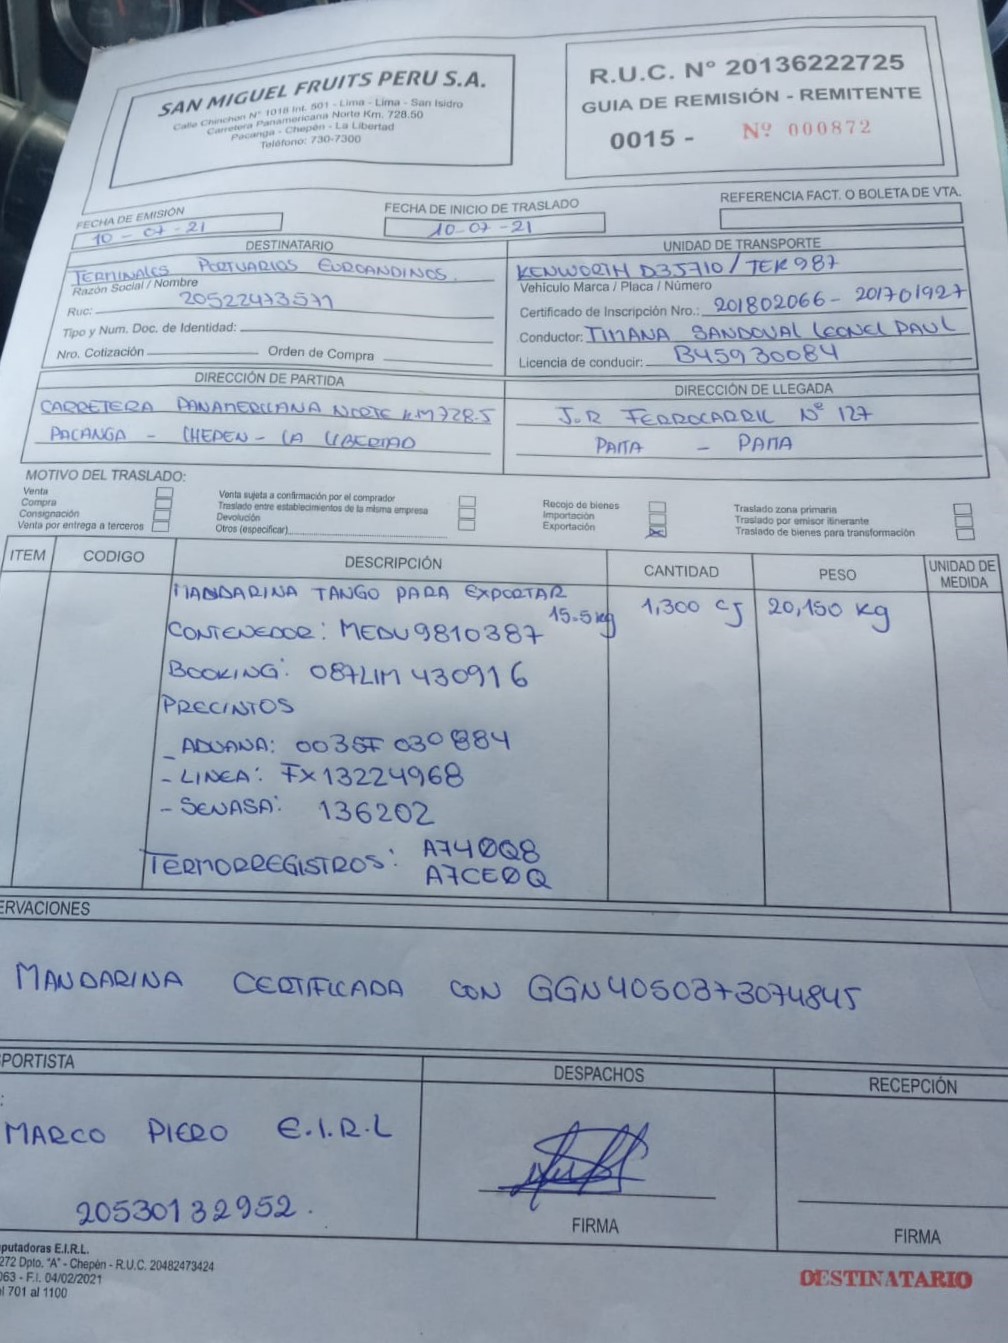 SAN MIGUEL FRUITS PERU S.A.
Calle Chinchon N° 1018 Int. 501 - Lima - Lima - San Isidro
Carretera Panamericana Norte Km. 728.50
Pacanga - Chepén - La Libertad
Teléfono: 730-7300
R.U.C. N° 20136222725
GUIA DE REMISIÓN - REMITENTE
0015 - Nº 000872
FECHA DE EMISIÓN
10 - 07 - 21
FECHA DE INICIO DE TRASLADO
10-07-21
REFERENCIA FACT. O BOLETA DE VTA.
DESTINATARIO
TERMINALES PORTUARIOS EUROANDINOS.
Razón Social / Nombre
Ruc: 20522473571
Tipo y Num. Doc. de Identidad:
Nro. Cotización Orden de Compra
UNIDAD DE TRANSPORTE
KENWORTH D3S710 / TEK987
Vehículo Marca / Placa / Número
Certificado de Inscripción Nro.: 201802066 - 201701927
Conductor: TIMANA SANDOVAL LEONEL PAUL
Licencia de conducir: B45930084
DIRECCIÓN DE PARTIDA
CARRETERA PANAMERICANA NORTE KM728.5
PACANGA - CHEPEN - LA LIBERTAD
DIRECCIÓN DE LLEGADA
J.R FERROCARRIL Nº 127
PAITA - PAITA
MOTIVO DEL TRASLADO:
Venta
Compra
Consignación
Venta por entrega a terceros
Venta sujeta a confirmación por el comprador
Traslado entre establecimientos de la misma empresa
Devolución
Otros (especificar)
Recojo de bienes
Importación
Exportación
Traslado zona primaria
Traslado por emisor itinerante
Traslado de bienes para transformación
ITEM CODIGO DESCRIPCIÓN CANTIDAD PESO UNIDAD DE MEDIDA
MANDARINA TANGO PARA EXPORTAR 15.5 kg 1,300 CJ 20,150 kg
CONTENEDOR: MEDU9810387
BOOKING: 087LIM430916
PRECINTOS
- ADUANA: 003SF030884
- LINEA: FX13224968
- SENASA: 136202
TERMORREGISTROS: A740Q8
A7CE0Q
ERVACIONES
MANDARINA CERTIFICADA CON GGN4050373074845
SPORTISTA
:
MARCO PIERO E.I.R.L
20530132952.
DESPACHOS
FIRMA
RECEPCIÓN
FIRMA
putadoras E.I.R.L.
272 Dpto. "A" - Chepén - R.U.C. 20482473424
063 - F.I. 04/02/2021
el 701 al 1100
DESTINATARIO